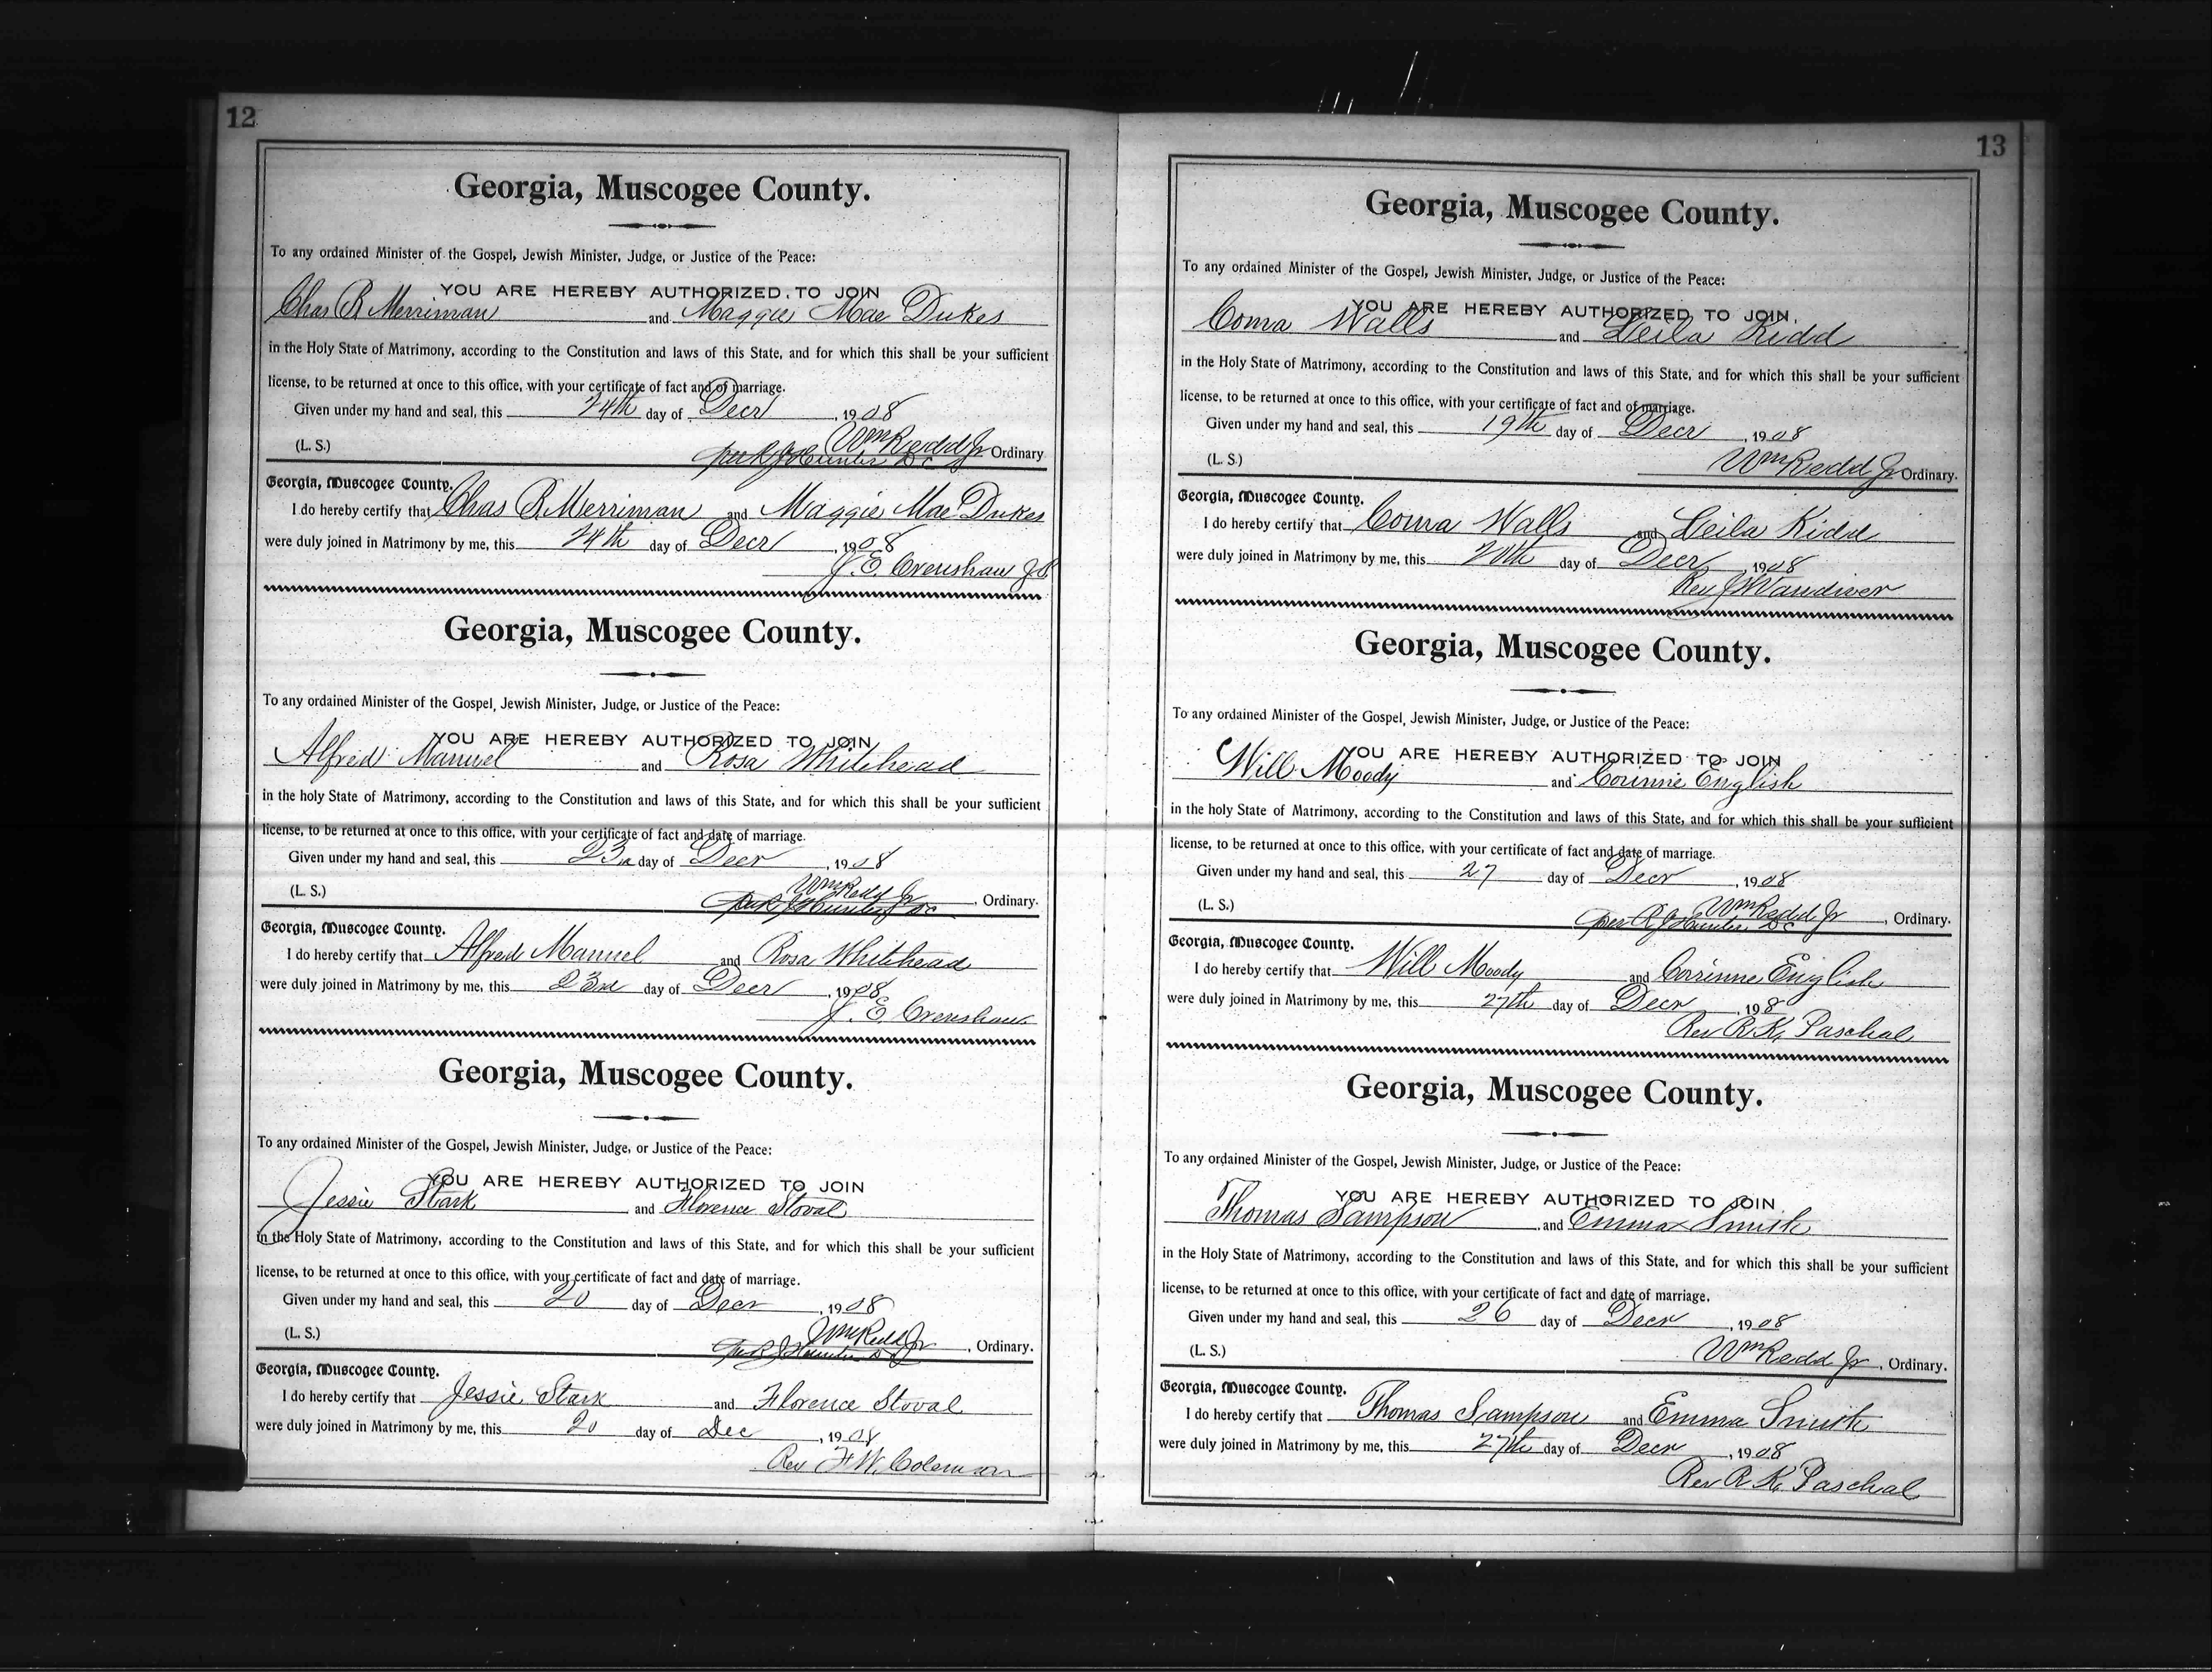 12
Georgia, Muscogee County.
To any ordained Minister of the Gospel, Jewish Minister, Judge, or Justice of the Peace:
YOU ARE HEREBY AUTHORIZED TO JOIN
Chas B Merriman and Maggie Mae Dukes
in the Holy State of Matrimony, according to the Constitution and laws of this State, and for which this shall be your sufficient
license, to be returned at once to this office, with your certificate of fact and of marriage.
Given under my hand and seal, this 24th day of Decr , 1908
Wm Redd Jr
(L. S.) per R J Hunter DC Ordinary.
Georgia, Muscogee County.
I do hereby certify that Chas B. Merriman and Maggie Mae Dukes
were duly joined in Matrimony by me, this 24th day of Decr , 1908
J. E. Crenshaw
Georgia, Muscogee County.
To any ordained Minister of the Gospel, Jewish Minister, Judge, or Justice of the Peace:
YOU ARE HEREBY AUTHORIZED TO JOIN
Alfred Manuel and Rosa Whitehead
in the holy State of Matrimony, according to the Constitution and laws of this State, and for which this shall be your sufficient
license, to be returned at once to this office, with your certificate of fact and date of marriage.
Given under my hand and seal, this day of Decr , 1908
Wm Redd Jr
(L. S.) per R J Hunter DC , Ordinary.
Georgia, Muscogee County.
I do hereby certify that Alfred Manuel and Rosa Whitehead
were duly joined in Matrimony by me, this 23rd day of Decr , 1908
J. E. Crenshaw
Georgia, Muscogee County.
To any ordained Minister of the Gospel, Jewish Minister, Judge, or Justice of the Peace:
YOU ARE HEREBY AUTHORIZED TO JOIN
Jessie Stark and Florence Stoval
in the Holy State of Matrimony, according to the Constitution and laws of this State, and for which this shall be your sufficient
license, to be returned at once to this office, with your certificate of fact and date of marriage.
Given under my hand and seal, this 20 day of Decr , 1908
Wm Redd Jr
(L. S.) per R J Hunter DC , Ordinary.
Georgia, Muscogee County.
I do hereby certify that Jessie Stark and Florence Stoval
were duly joined in Matrimony by me, this 20 day of Dec , 1908
Rev F W. Coleman
13
Georgia, Muscogee County.
To any ordained Minister of the Gospel, Jewish Minister, Judge, or Justice of the Peace:
YOU ARE HEREBY AUTHORIZED TO JOIN
Coma Walls and Leila Kidd
in the Holy State of Matrimony, according to the Constitution and laws of this State, and for which this shall be your sufficient
license, to be returned at once to this office, with your certificate of fact and of marriage.
Given under my hand and seal, this 19th day of Decr , 1908
(L. S.) Wm Redd Jr Ordinary.
Georgia, Muscogee County.
I do hereby certify that Coma Walls and Leila Kidd
were duly joined in Matrimony by me, this 20th day of Decr , 1908
Rev J W Vandiver
Georgia, Muscogee County.
To any ordained Minister of the Gospel, Jewish Minister, Judge, or Justice of the Peace:
YOU ARE HEREBY AUTHORIZED TO JOIN
Will Moody and Corinne English
in the holy State of Matrimony, according to the Constitution and laws of this State, and for which this shall be your sufficient
license, to be returned at once to this office, with your certificate of fact and date of marriage.
Given under my hand and seal, this 27 day of Decr , 1908
Wm Redd Jr
(L. S.) per R J Hunter DC , Ordinary.
Georgia, Muscogee County.
I do hereby certify that Will Moody and Corrinne English
were duly joined in Matrimony by me, this 27th day of Decr , 198
Rev R. K. Paschal
Georgia, Muscogee County.
To any ordained Minister of the Gospel, Jewish Minister, Judge, or Justice of the Peace:
YOU ARE HEREBY AUTHORIZED TO JOIN
Thomas Sampson and Emma Smith
in the Holy State of Matrimony, according to the Constitution and laws of this State, and for which this shall be your sufficient
license, to be returned at once to this office, with your certificate of fact and date of marriage.
Given under my hand and seal, this 26 day of Decr , 1908
(L. S.) Wm Redd Jr , Ordinary.
Georgia, Muscogee County.
I do hereby certify that Thomas Sampson and Emma Smith
were duly joined in Matrimony by me, this 27th day of Decr , 1908
Rev R. K. Paschal